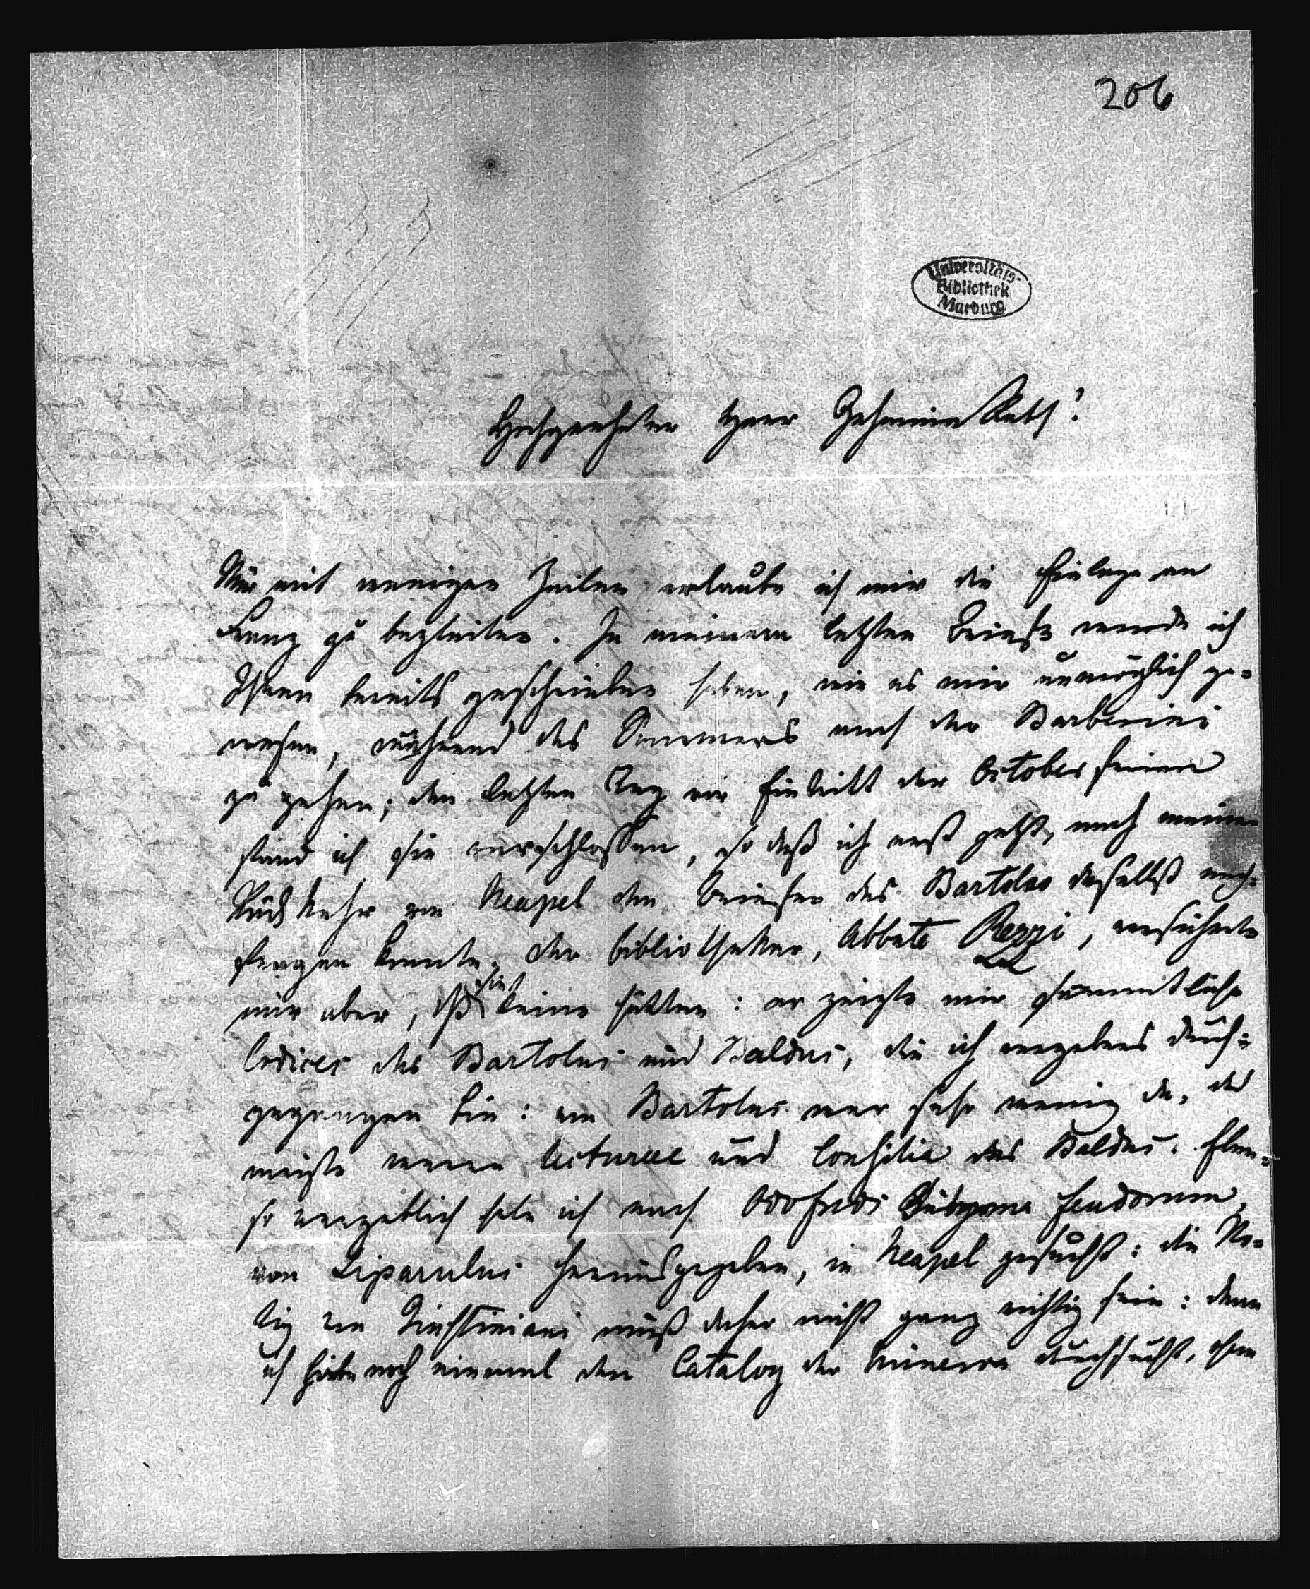 206
Universitäts-
Bibliothek
Marburg
Hochgeehrter Herr Geheimer Rath!
Nur mit wenigen Zeilen erlaube ich mir die Einlage an
Franz zu begleiten. In meinem letzten Briefe werde ich
Ihnen bereits geschrieben haben, wie es mir unmöglich ge-
wesen, während des Sommers nach der Barberini
zu gehen; den letzten Tag vor Eintritt der Octoberferien
fand ich sie verschlossen, so daß ich erst jetzt, nach meiner
Rückkehr von Neapel den Briefen des Bartolus daselbst nach-
fragen konnte. Der Bibliothekar, Abbate Rezzi, versicherte
mir aber, daß sie keine hätten: er zeigte mir sämmtliche
Codices des Bartolus und Baldus, die ich vergebens durch-
gegangen bin: von Bartolus war sehr wenig da, das
meiste waren lecturae und Consilia des Baldus. Eben-
so vergeblich habe ich nach Odofredi Summa feudorum,
von Liparulus herausgegeben, in Neapel gesucht: die No-
tiz von Giustiniani muß daher nicht ganz richtig sein: denn
ich habe noch einmal den Catalog der Minerva durchsucht, ohne